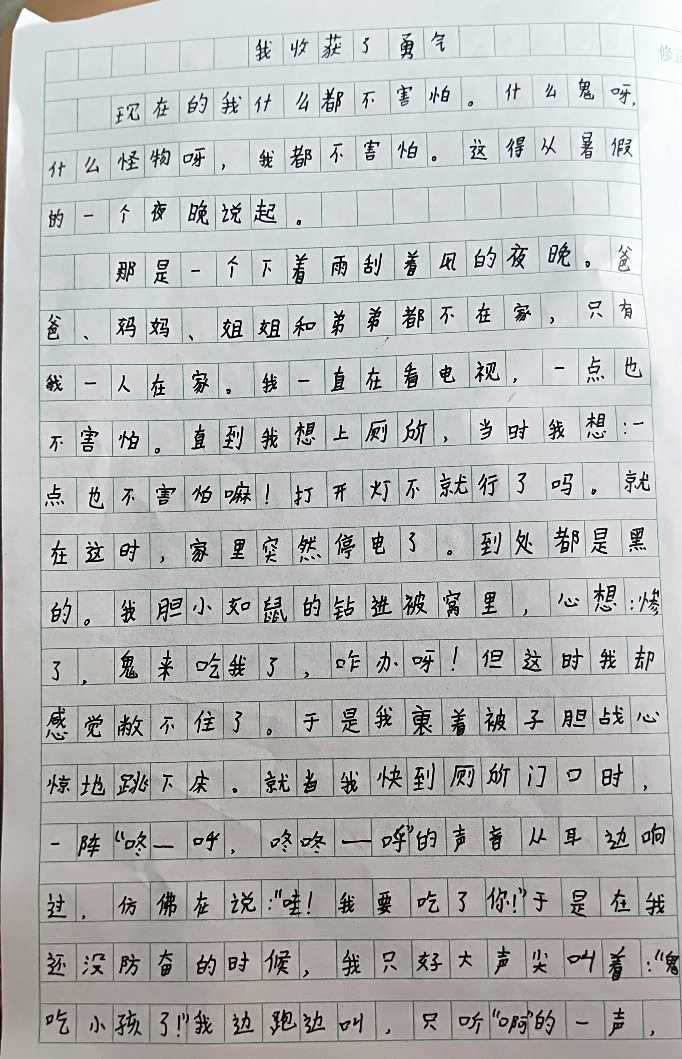 我收获了勇气
现在的我什么都不害怕。什么鬼呀,
什么怪物呀，我都不害怕。这得从暑假
的一个夜晚说起。
那是一个下着雨刮着风的夜晚。爸
爸、妈妈、姐姐和弟弟都不在家，只有
我一人在家。我一直在看电视，一点也
不害怕。直到我想上厕所，当时我想:一
点也不害怕嘛！打开灯不就行了吗。就
在这时，家里突然停电了。到处都是黑
的。我胆小如鼠的钻进被窝里，心想:惨
了，鬼来吃我了，咋办呀！但这时我却
感觉敝不住了。于是我裹着被子胆战心
惊地跳下床。就当我快到厕所门口时，
一阵“咚—呼，咚咚—呼”的声音从耳边响
过，仿佛在说:“哇！我要吃了你!”于是在我
还没防奋的时候，我只好大声尖叫着:“鬼
吃小孩了!”我边跑边叫，只听“啊”的一声，